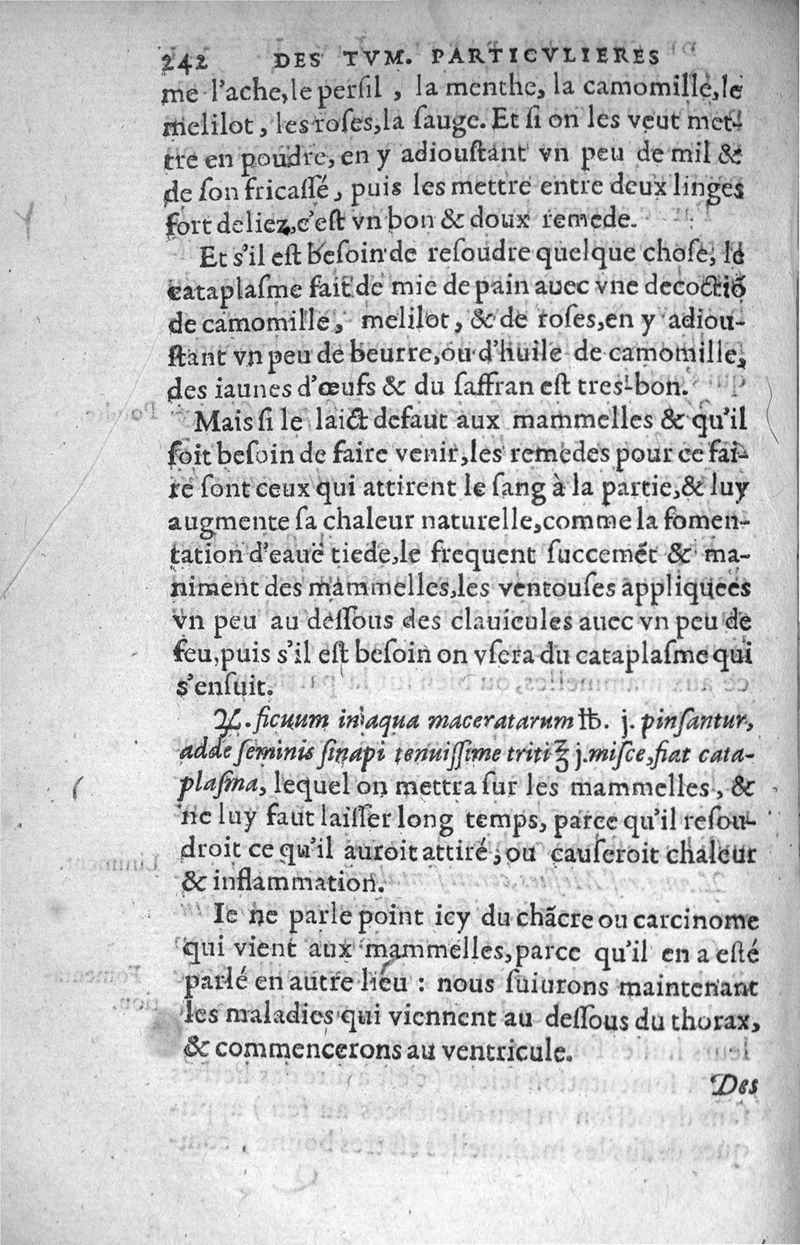 242 DES TVM. PARTICVLIERES
me l'ache, le persil, la menthe, la camomille, le
melilot, les roſes, la ſauge. Et ſi on les veut met-
tre en poudre, en y adiouſtant vn peu de mil &
de ſon fricaſſé, puis les mettre entre deux linges
fort deliez, c'eſt vn bon & doux remede.
Et s'il eſt beſoin de reſoudre quelque choſe, le
cataplaſme fait de mie de pain auec vne decoctiõ
de camomille, melilot, & de roſes, en y adiou-
ſtant vn peu de beurre, ou d'huile de camomille,
des iaunes d'œufs & du ſaffran eſt tres-bon.
Mais ſi le laict defaut aux mammelles & qu'il
ſoit beſoin de faire venir, les remedes pour ce fai-
re ſont ceux qui attirent le ſang à la partie, & luy
augmente ſa chaleur naturelle, comme la fomen-
tation d'eauë tiede, le frequent ſuccemẽt & ma-
niment des mammelles, les ventouſes appliquees
vn peu au deſſous des clauicules auec vn peu de
feu, puis s'il eſt beſoin on vſera du cataplaſme qui
s'enſuit.
♃. ficuum in aqua maceratarum ℔. j. pinſantur,
adde ſeminis ſinapi tenuiſſime triti ℥ j. miſce, fiat cata-
plaſma, lequel on mettra ſur les mammelles, &
ne luy faut laiſſer long temps, parce qu'il reſou-
droit ce qu'il auroit attiré, ou cauſeroit chaleur
& inflammation.
Ie ne parle point icy du chãcre ou carcinome
qui vient aux mammelles, parce qu'il en a eſté
parlé en autre lieu : nous ſuiurons maintenant
les maladies qui viennent au deſſous du thorax,
& commencerons au ventricule.
Des